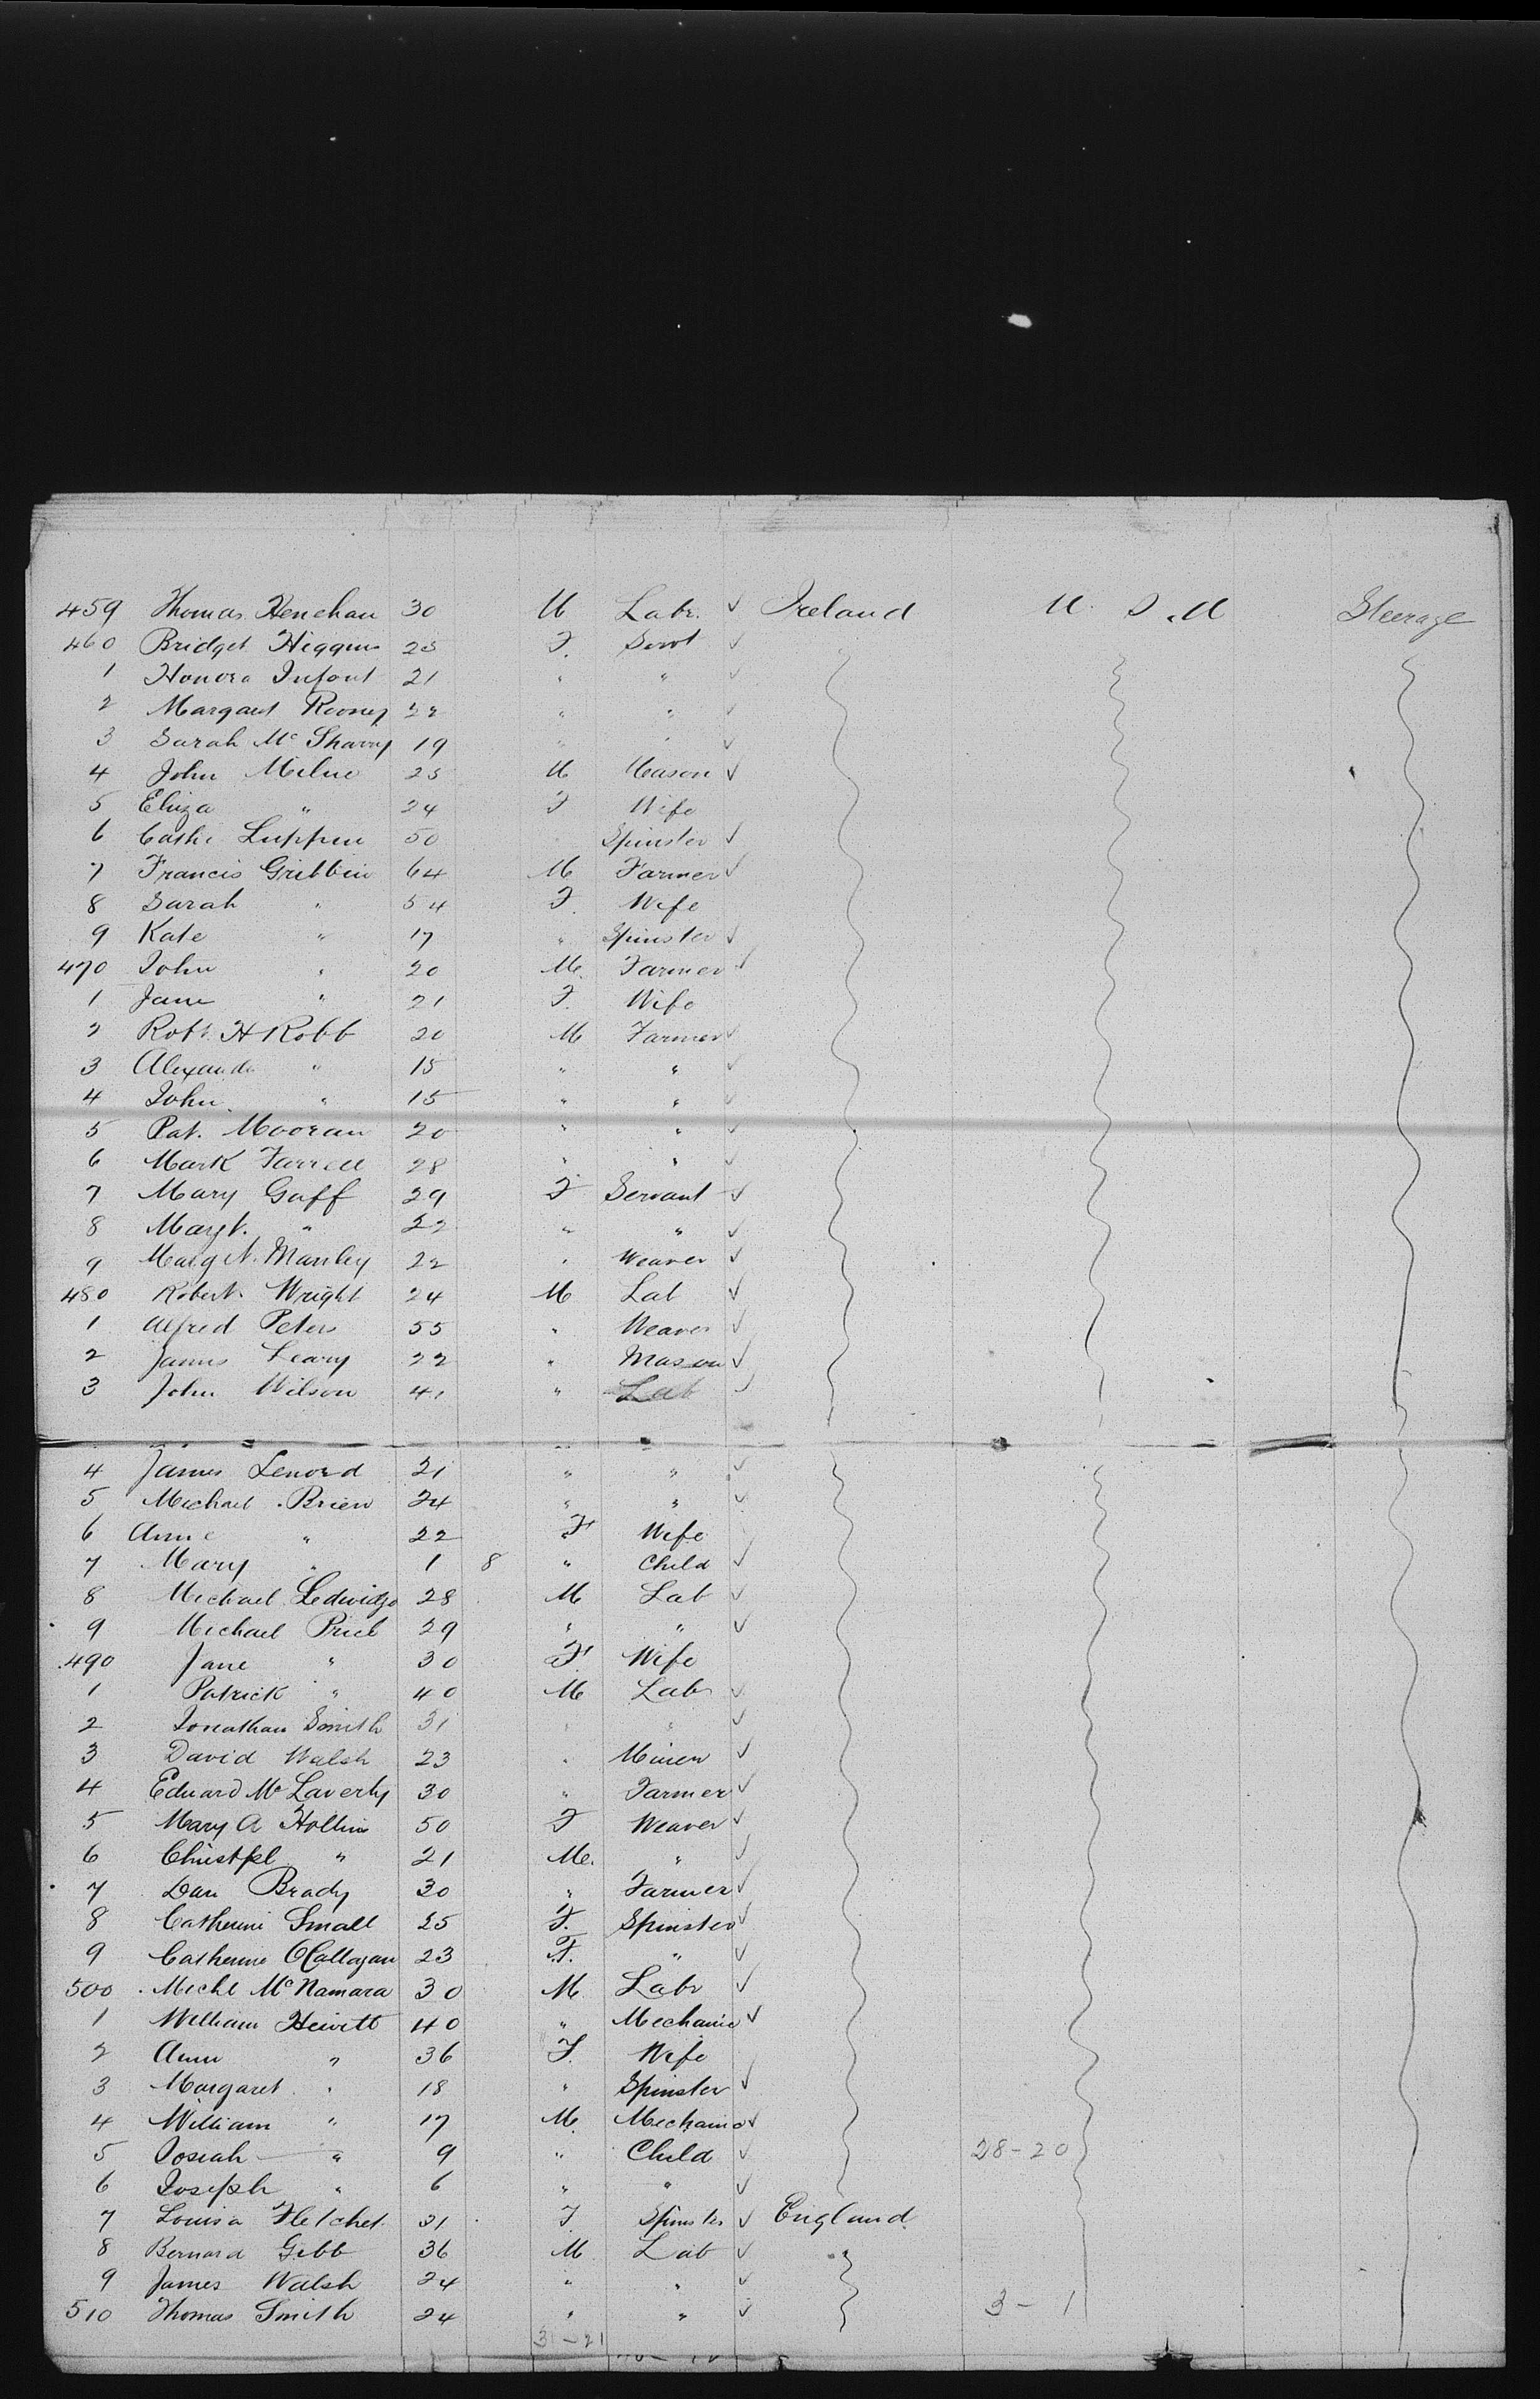 459 Thomas Henehan 30 M Labr. ✓ Ireland U. S. A Steerage
460 Bridget Higgins 25 F. Servt ✓
1 Honora 21 " " ✓
2 Margaret Rooney 22 " " ✓
3 Sarah Mc Sharry 19 " " ✓
4 John Milne 25 M Mason ✓
5 Eliza " 24 F Wife
6 Cathe 50 Spinster ✓
7 Francis Gribbin 64 M Farmer ✓
8 Sarah " 54 F. Wife
9 Kate " 17 " Spinster ✓
470 John " 20 M. Farmer ✓
1 Jane " 21 F. Wife
2 Robt. H Robb 20 M Farmer ✓
3 Alexander " 15 " " ✓
4 John " 15 " " ✓
5 Pat. Mooran 20 " " ✓
6 Mark Farrell 28 " " ✓
7 Mary Gaff 29 F Servant ✓
8 Margt. " 22 " " ✓
9 Margt. Manley 22 " Weaver ✓
480 Robert Wright 24 M Lab ✓
1 Alfred Peters 55 " Weaver ✓
2 James Leary 22 " Mason ✓
3 John Wilson 41 " Lab ✓
4 James Lenord 21 " " ✓
5 Michael Brien 24 " " ✓
6 Anne " 22 F Wife
7 Mary " 1 8 " Child ✓
8 Michael Ledwidge 28 M Lab ✓
9 Michael 29 " " ✓
490 Jane " 30 F Wife
1 Patrick " 40 M Labr ✓
2 Jonathan Smith 31 " " ✓
3 David Walsh 23 " Miner ✓
4 Edward Mc Laverty 30 " Farmer ✓
5 Mary A Hollins 50 F Weaver ✓
6 " 21 M. " ✓
7 Dan Brady 30 " Farmer ✓
8 Catherine Small 25 F. Spinster ✓
9 Catherine O'Callagan 23 F. " ✓
500 Michl McNamara 30 M Labr ✓
1 William Hewitt 40 " Mechanic ✓
2 Ann " 36 F. Wife
3 Margaret " 18 " Spinster ✓
4 William " 17 M. Mechanic ✓
5 Josiah " 9 " Child ✓ 28-20
6 Joseph " 6 " " ✓
7 Louisa Fletcher 31 F Spinster ✓ England
8 Bernard Gibb 36 M Lab ✓ "
9 James Walsh 24 " " ✓
510 Thomas Smith 24 " " ✓ 3-1
31-21